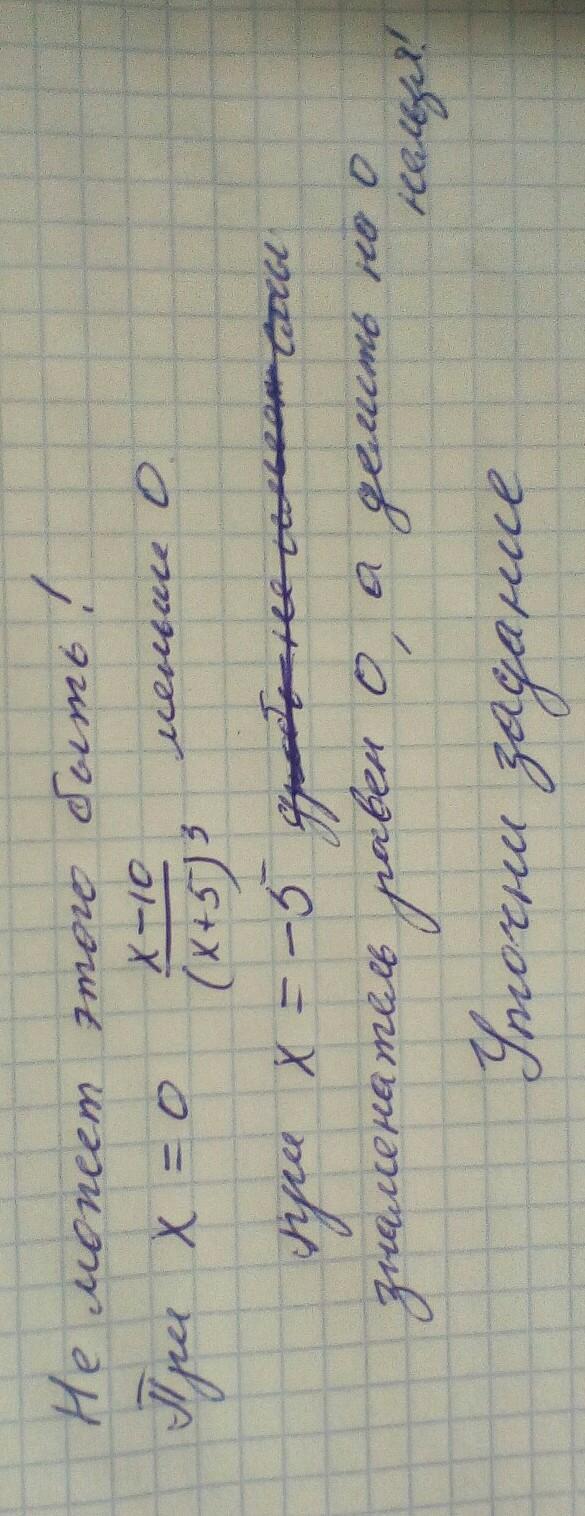 Не может этого быть!
При x = 0 \frac{x-10}{(x+5)^3} меньше 0.
при x = -5 дробь не имеет смы
знаменатель равен 0, а делить на 0
нельзя!
Уточни задание